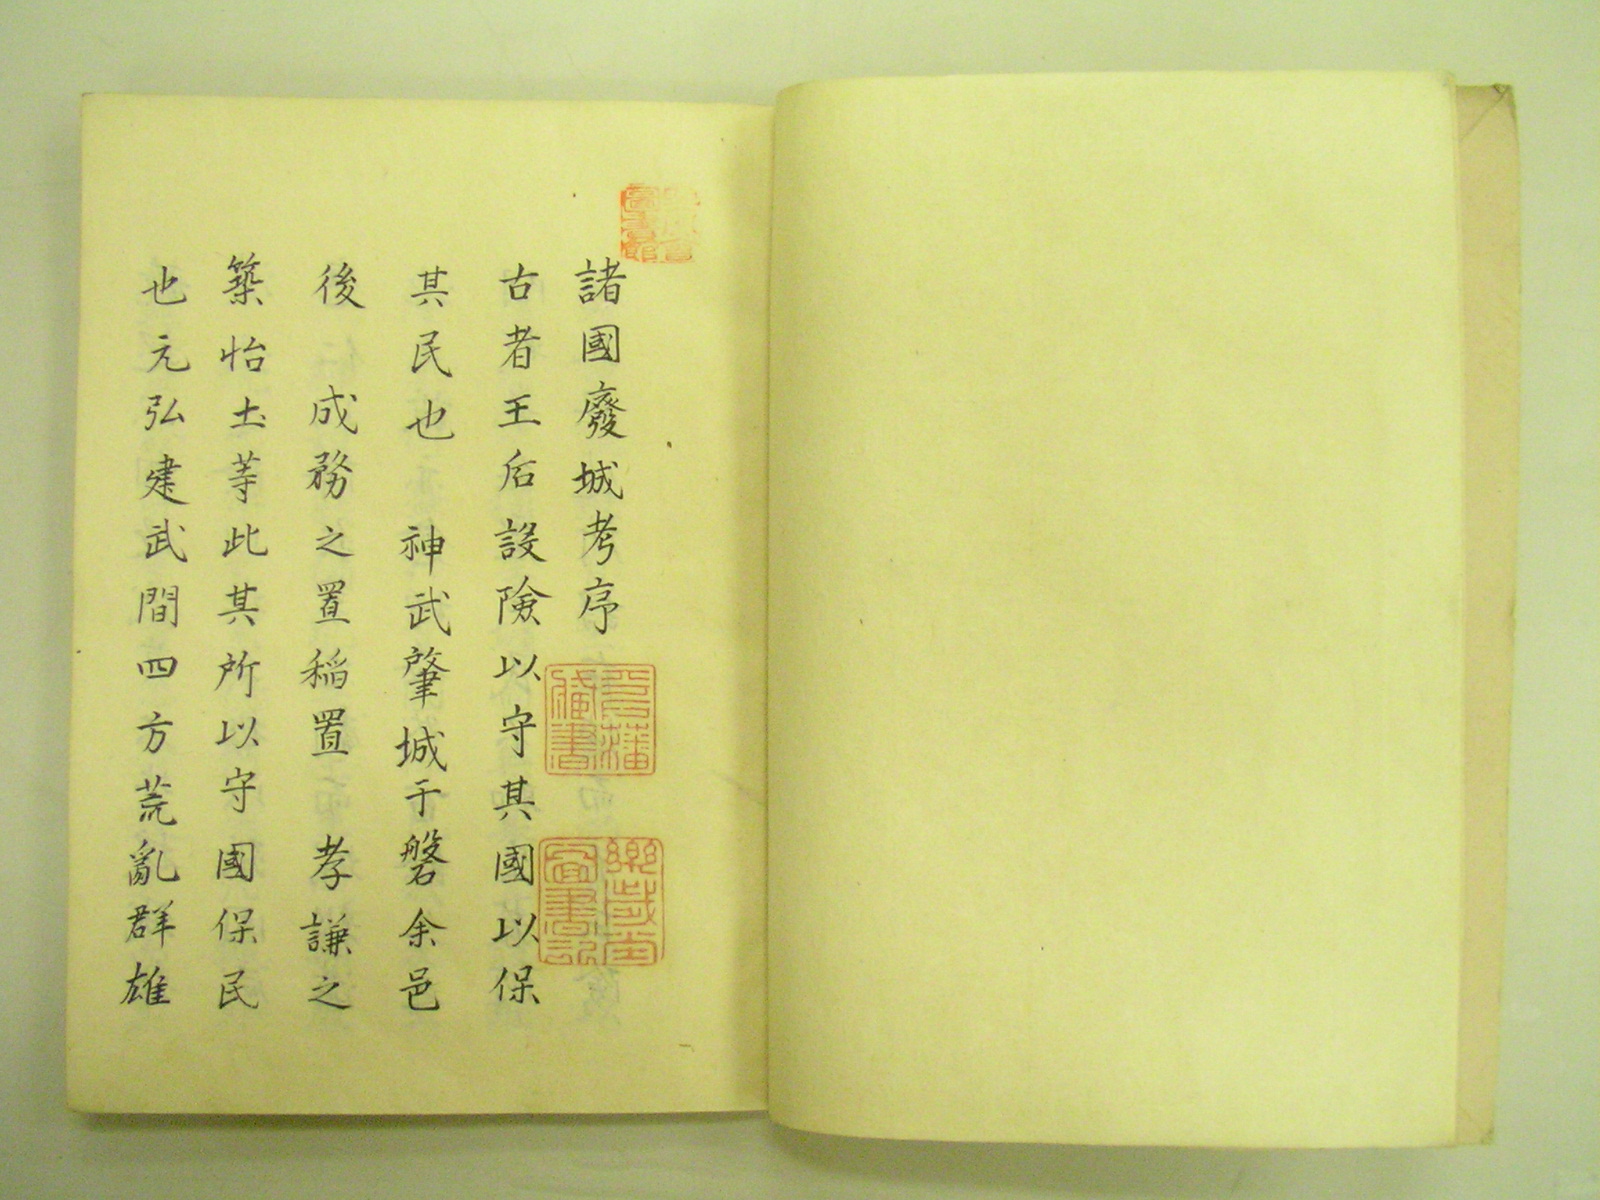 諸國廢城考序
古者王后設險以守其國以保
其民也　神武肇城于磐余邑
後　成務之置稲置　孝謙之
築怡土等此其所以守國保民
也元弘建武間四方荒亂群雄
圖書館
邑藩
藏書
樂歳堂
圖書記